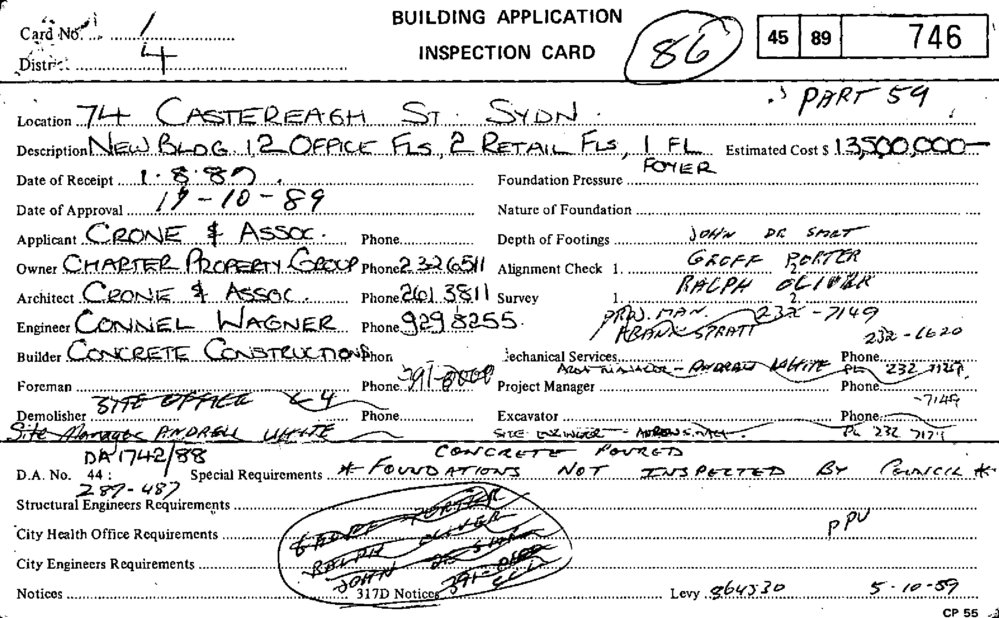 BUILDING APPLICATION
INSPECTION CARD
Card No. 1
District 4
86
45 89 746
PART 59
Location 74 CASTEREAGH ST. SYDN.
Description NEW BLDG. 12 OFFICE FLS, 2 RETAIL FLS, 1 FL FOYER
Estimated Cost $ 13,500,000—
Date of Receipt 1.8.89
Foundation Pressure
Date of Approval 19-10-89
Nature of Foundation
Applicant CRONE & ASSOC. Phone
Depth of Footings JOHN DE SMET
Owner CHARTER PROPERTY GROUP Phone 2326511
Alignment Check 1. GEOFF PORTER 2.
Architect CRONE & ASSOC. Phone 261 3811
Survey 1. RALPH OLIVER 2.
Engineer CONNEL WAGNER Phone 929 8255
MAN. 232-7149
FRANK SPRATT 232-6620
Builder CONCRETE CONSTRUCTIONS Phon
Mechanical Services Phone
MANAGER - ANDREW WHITE PH 232
Foreman Phone 391-
Project Manager Phone
SITE OFFICE -7149
Demolisher Phone
Excavator Phone
Site Manager ANDREW WHITE
SITE - PH 232 7171
DA 1742/88
CONCRETE POURED
D.A. No. 44: 289-487
Special Requirements * FOUNDATIONS NOT INSPECTED BY COUNCIL *
Structural Engineers Requirements
GEOFF PORTER
City Health Office Requirements
RALPH OLIVER
PPU
City Engineers Requirements
JOHN DE SMET
Notices
317D Notices 391-
Levy 864530 5-10-89
CP 55